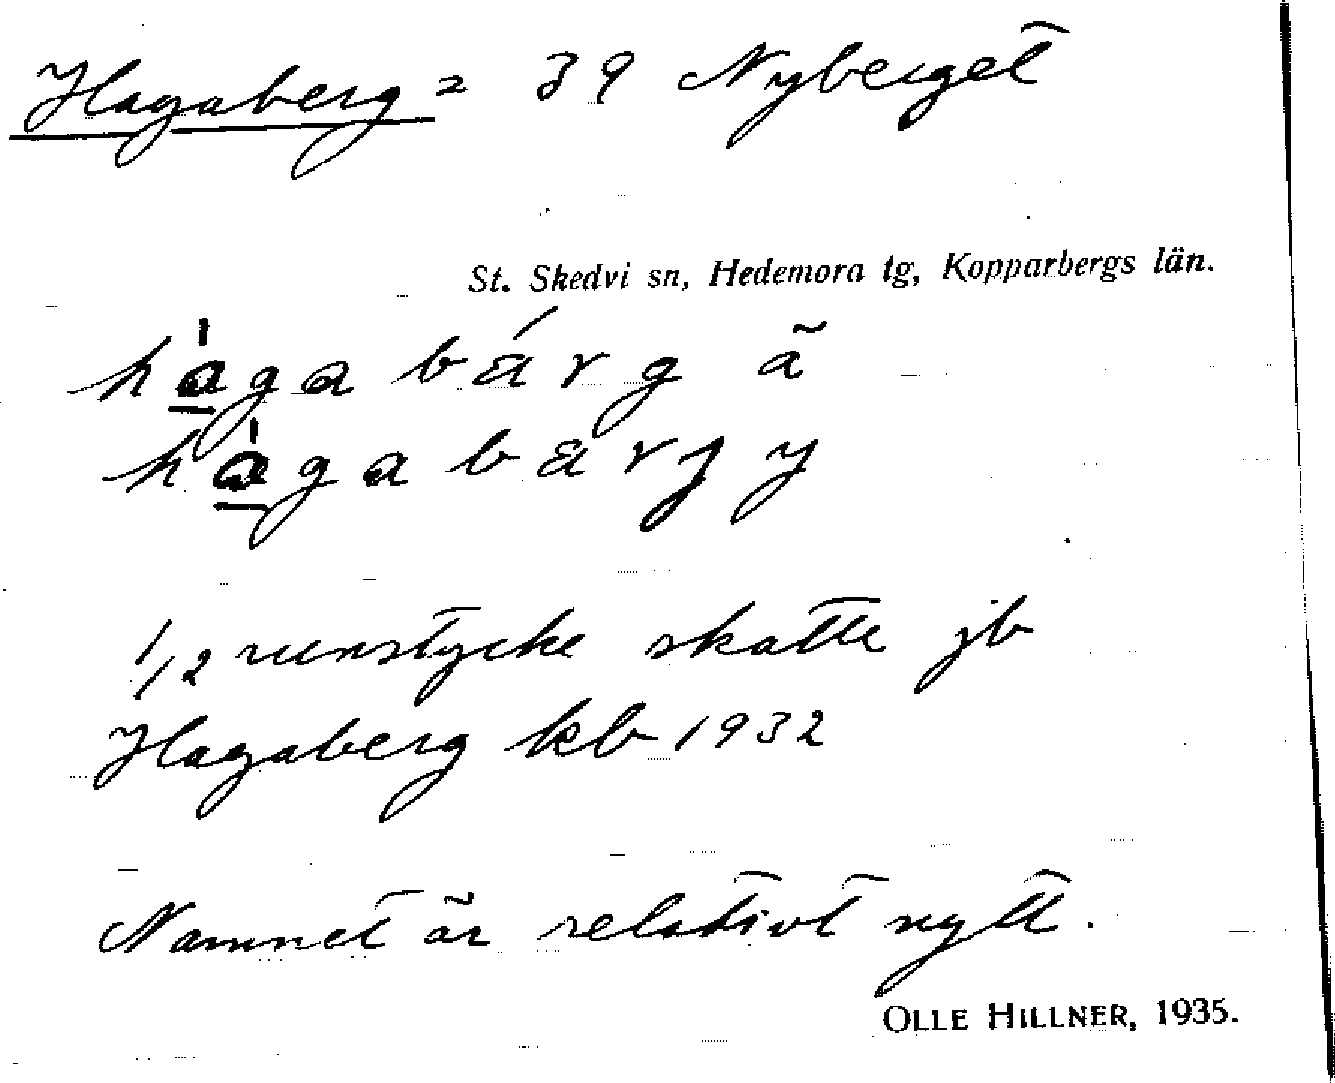 Hagaberg = 39 Nyberget
St. Skedvi sn, Hedemora tg, Kopparbergs län.
hàgabárg ä
hàgabarjy
1/2 runstycke skatte jb
Hagaberg kb 1932
Namnet är relativt nytt.
OLLE HILLNER, 1935.